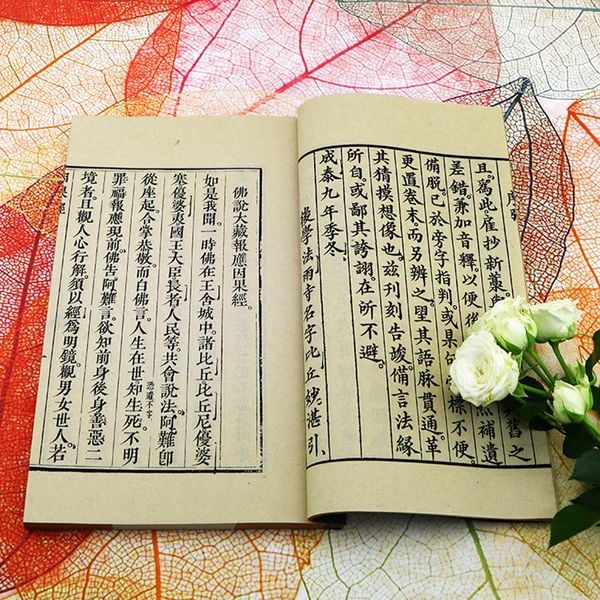 序引
且。爲此。雇抄新藁
舊之
差錯。兼加音釋。以便後
補遺
備脫。已於旁字指判。或果句
標不便。
更置卷末而另辨之望其語脉貫通。革
其猜摸想像也。玆刊刻告竣。備言法緣
所自。或鄙其誇詡。在所不避。
成泰九年季冬。
學法雨寺名字比丘 湛引、
佛說大藏報應因果經。
如是我聞。一時佛在王舍城中。諸比丘比丘尼優婆
塞優婆夷國王大臣長者人民等。共會說法。阿難卽
從座起。合掌恭敬。而白佛言。人生在世知生死。不明
恐遺不字
罪福報應現前。佛告阿難言。欲知前身後身善惡二
境者。且觀人心行解。須以經爲明鏡。觀男女世人。若
因果經